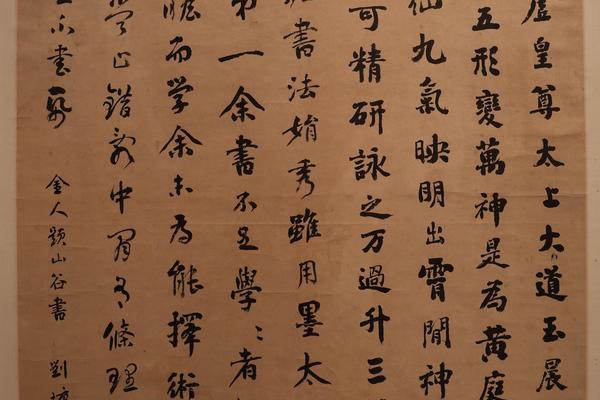 虛皇尊太上大道玉晨
五形變萬神是為黃庭
仙九氣映明出霄間神
可精研詠之万過升三
書法娟秀雖用墨太
弟一余書不足學〻者
瞻而学余未為能擇術
錯中有條理
書
金人題山谷書 劉墉